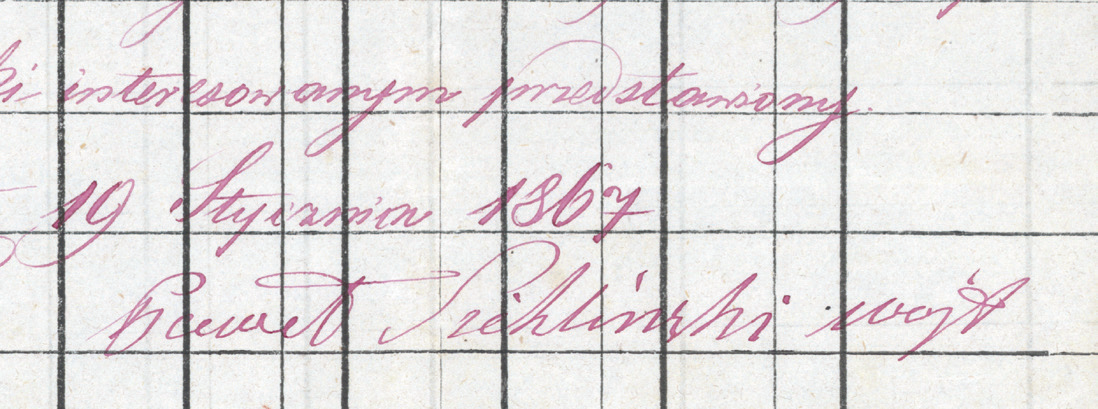 ki interesowanym przedstawiony.
19 Stycznia 1867
Paweł wójt